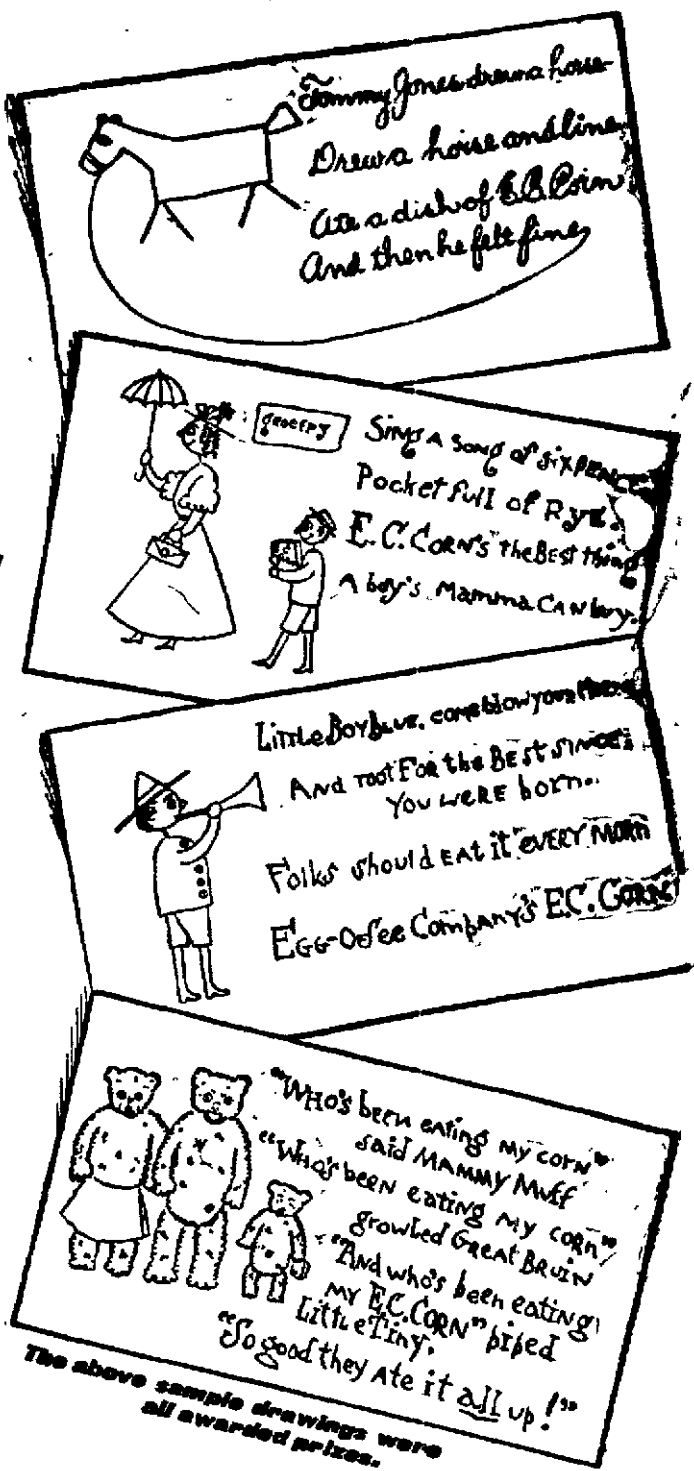 Tommy Jones drew a horse
Drew a horse and line,
Ate a dish of E.C. Corn
And then he felt fine,
grocery
Sing A Song of sixpence
Pocket full of Rye.
E.C. Corn's the Best thing
A boy's Mamma CAN buy.
Little Boy blue, come blow your Horn
And root For the BEST SINCE
You WERE born..
Folks should EAT it EVERY MORN
Egg-O-See Company's E.C. Corn
"Who's been eating my corn"
said Mammy Muff
"Who's been eating my corn"
growled Great Bruin
"And who's been eating
my E.C. Corn" piped
Little Tiny.
"So good they Ate it all up!"
The above sample drawings were
all awarded prizes.